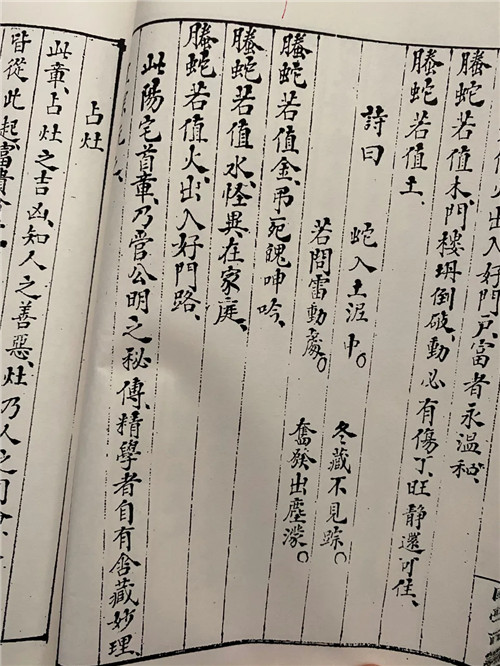 入好門戶、富者永温和、
螣蛇若值木、門樓坍倒破、動必有傷丁、旺靜還可住、
螣蛇若值土、
詩曰
蛇入土泥中。冬藏不見踪。
若問雷動處。奮發出塵濛。
螣蛇若值金、吊死魄呻吟、
螣蛇若值水、怪異在家庭、
螣蛇若值火、出入好門路、
此陽宅首章、乃管公明之秘傳、精學者自有含藏妙理、
占灶
此章、占灶之吉凶、知人之善惡、灶乃人之司命
皆從此起、富貴